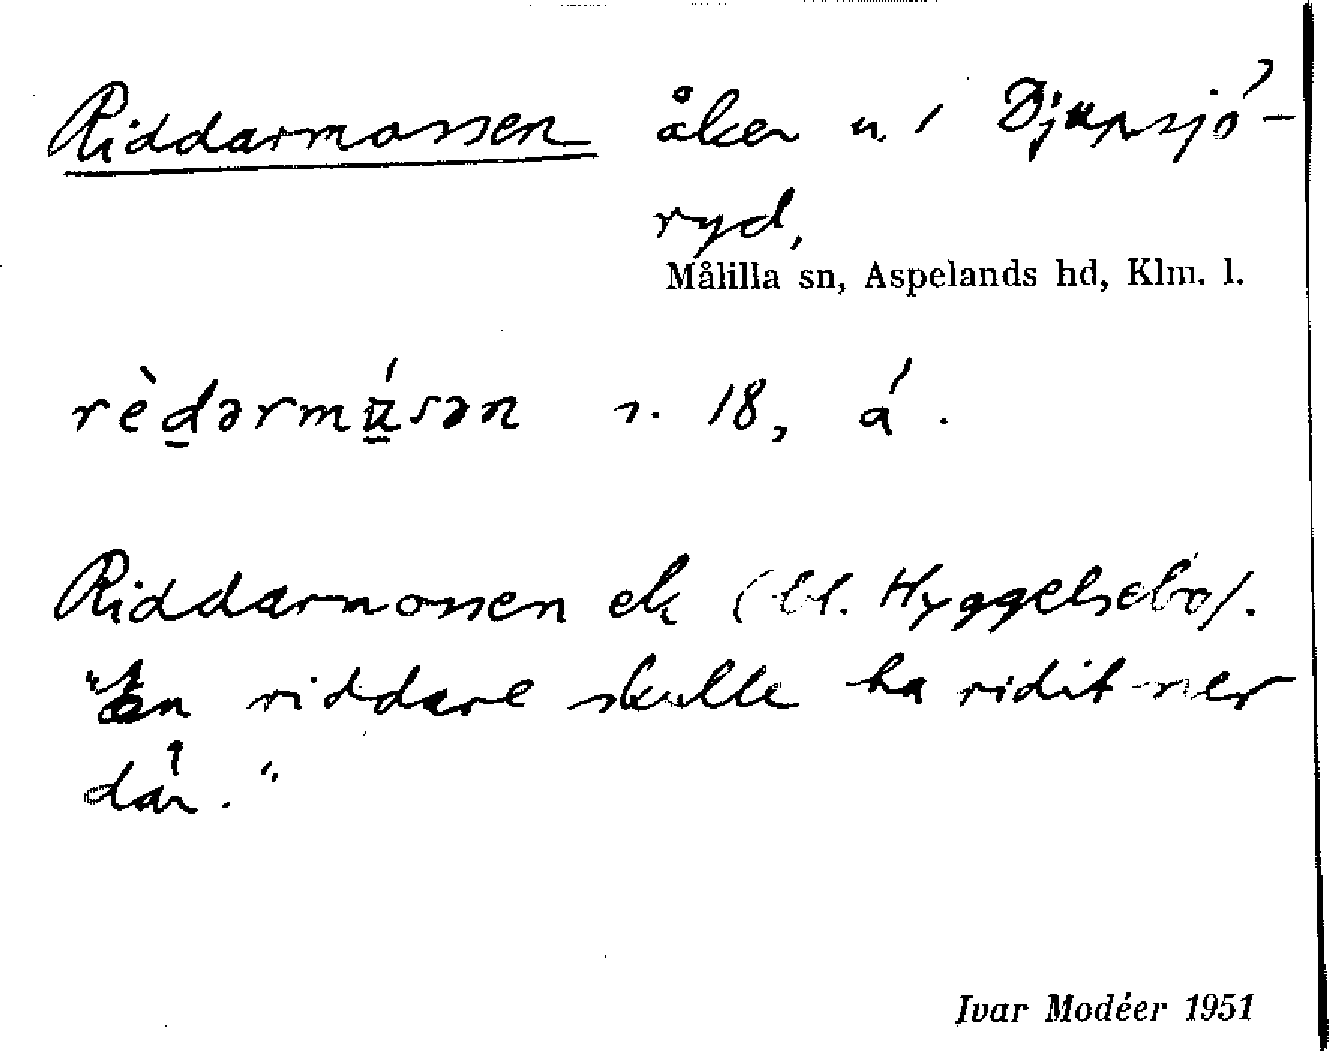 Riddarmossen åker u. / Djupsjö-
ryd,
Målilla sn, Aspelands hd, Klm. l.
rèd̲ərmú̲sən r. 18, á.
Riddarmossen ek (bl. Hyggelsebo).
"En riddare skulle ha ridit ner
där."
Ivar Modéer 1951